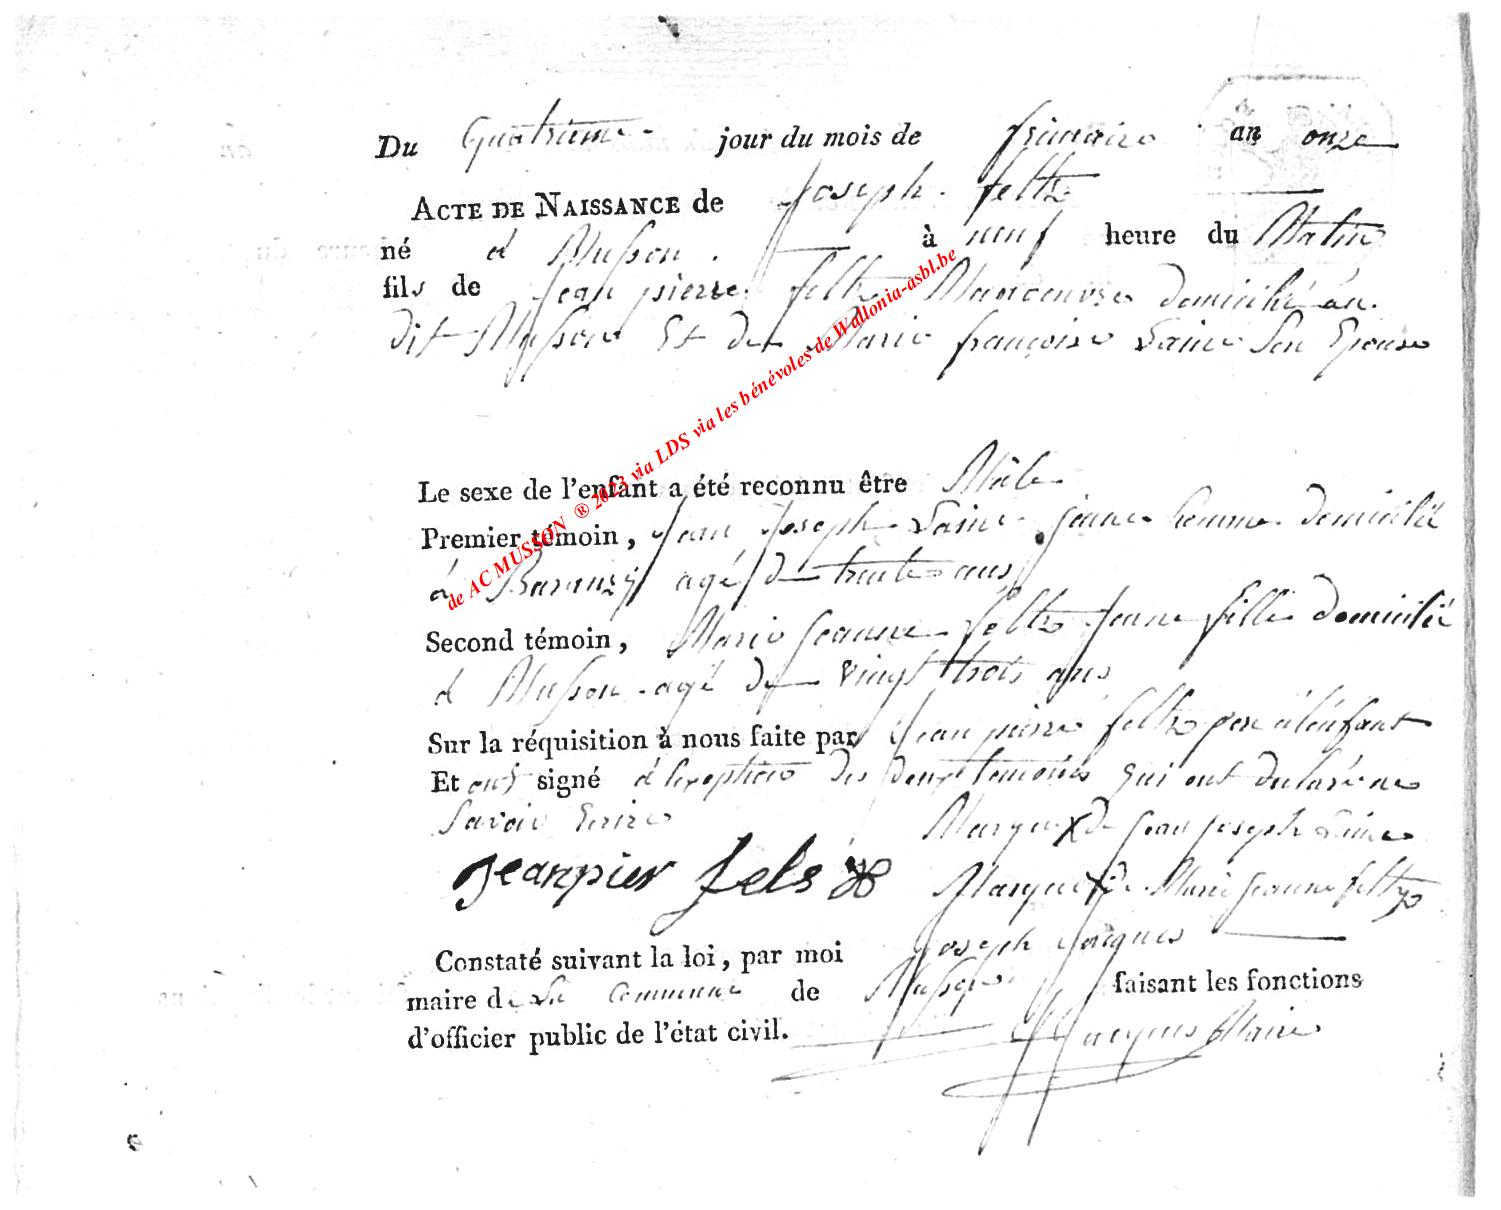 Du Quatrieme jour du mois de frimaire an onze
ACTE DE NAISSANCE de Joseph feltz
né à Musson. à neuf heure du Matin
fils de Jean pierre feltz Manoeuvre domicilié au
dit Musson Et de Marie françoise Laine Son Epouse
Le sexe de l'enfant a été reconnu être Mâle
Premier témoin, Jean Joseph Laine jeune homme domicilié
à Baranzÿ agé de trente ans
Second témoin, Marie Jeanne feltz Jeune fille domicilié
à Musson agé de vingt trois ans
Sur la réquisition à nous faite par Jean pierre feltz pere à lenfant
Et ont signé à lexeption des deux temoins qui ont declaré ne
Savoir Ecrire Marque X de Jean Joseph Laine
Jeanpier fels Marque X de Marie Jeanne feltz
Constaté suivant la loi, par moi Joseph Jacques
maire de La Commune de Musson faisant les fonctions
d'officier public de l'état civil. Jacques Maire
de AC MUSSON ® 2023 via LDS via les bénévoles de Wallonia-asbl.be